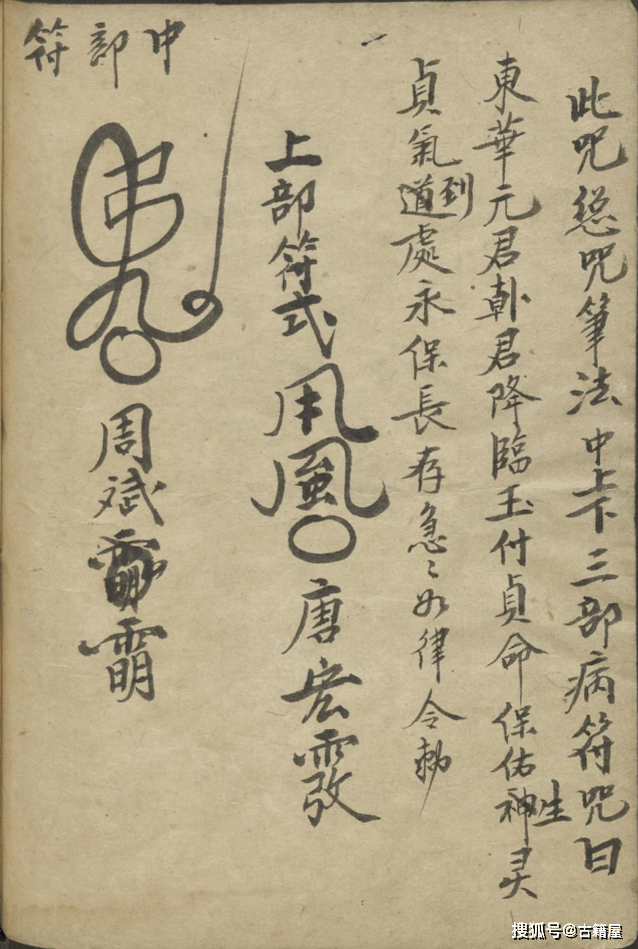 此咒總咒筆法中上下三部病符咒曰
東華元君韓君降臨玉付貞命保佑神生灵
貞氣道到處永保長存急〻如律令勅
上部符式
風
唐宏
中部符
周斌
搜狐号@古籍屋